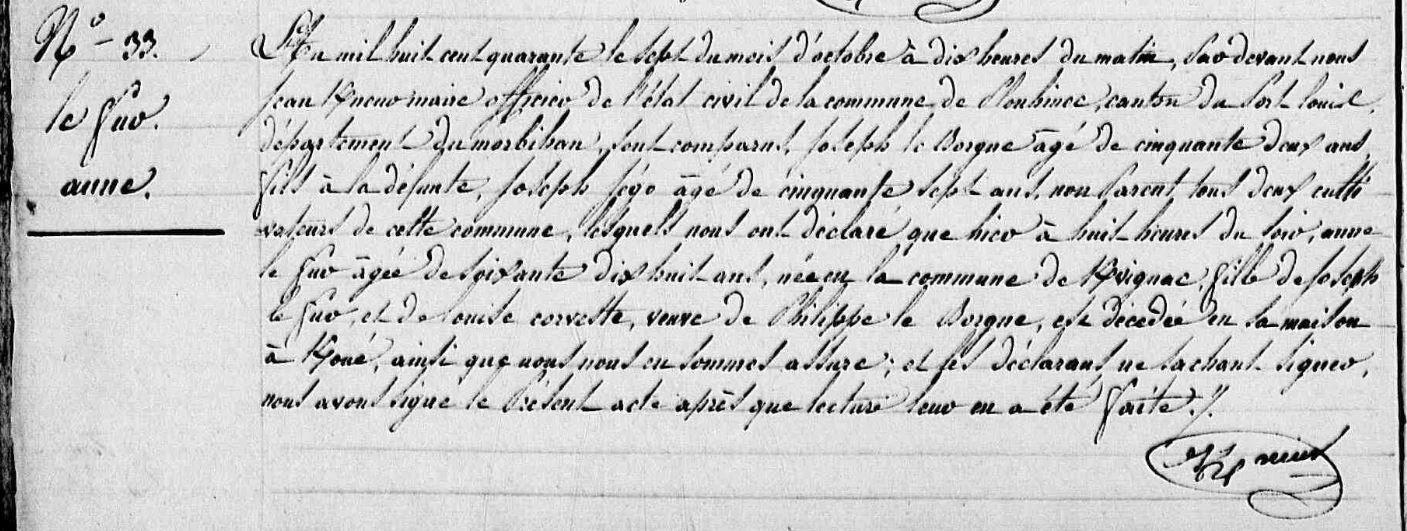 N° 33.
le Guv.
anne.
L'An mil huit cent quarante le sept du mois d'octobre à dix heures du matin, Par devant nous
Jean maire officier de l'état civil de la commune de Plouhinec, canton du Port-louis,
département du morbihan, sont comparus, joseph le Borgne âgé de cinquante deux ans,
fils à la défunte, joseph jégo âgé de cinquante sept ans, non parent, tous deux culti
vateurs de cette commune, lesquels nous ont déclaré que hier à huit heures du soir, anne
le Guv âgée de soixante dix huit ans, née en la commune de Kvignac, fille de joseph
le Guv, et de louise corvette, veuve de Philippe le Borgne, est décédée en sa maison
à Koué, ainsi que nous nous en sommes assuré; et les déclarants ne sachant signer,
nous avons signé le Présent acte après que lecture leur en a été faite ./.